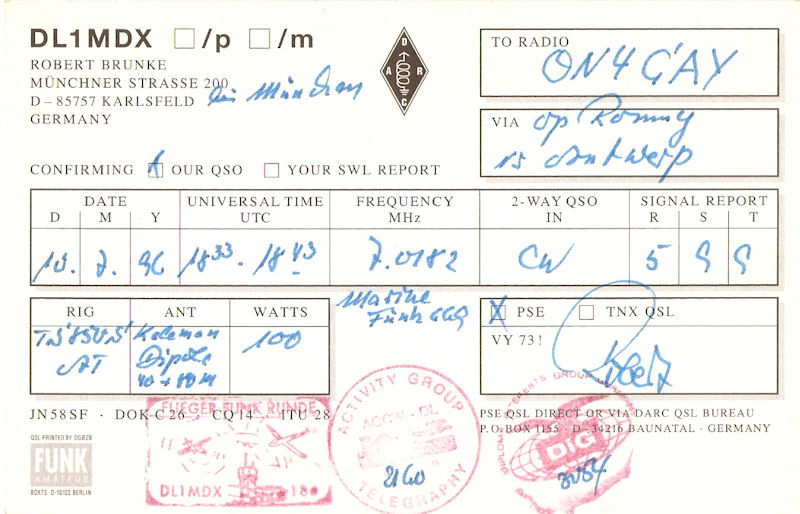 DL1MDX □/p □/m
ROBERT BRUNKE
MÜNCHNER STRASSE 200
D – 85757 KARLSFELD bei München
GERMANY
D
A R
C
TO RADIO
ON4GAY
VIA op Ronny
is Antwerp
CONFIRMING OUR QSO □ YOUR SWL REPORT
DATE UNIVERSAL TIME FREQUENCY 2-WAY QSO SIGNAL REPORT
D M Y UTC MHz IN R S T
10. 7. 96 18 33 - 18 43 7.0182 CW 5 9 9
Marine
Funk 669
RIG ANT WATTS
TS'850S' Kelemen 100
AT Dipole
40 + 80 M
X PSE □ TNX QSL
VY 73!
Robert
JN58SF · DOK C 26 · CQ 14 · ITU 28
PSE QSL DIRECT OR VIA DARC QSL BUREAU
P.O. BOX 1155 · D – 34216 BAUNATAL · GERMANY
QSL PRINTED BY DG8ZB
FUNK
AMATEUR
BOX73 D-10122 BERLIN
FLIEGER FUNK RUNDE
DL1MDX 18
ACTIVITY GROUP
AGCW-DL
2160
TELEGRAPHY
INTERESTS GROUP
DIG